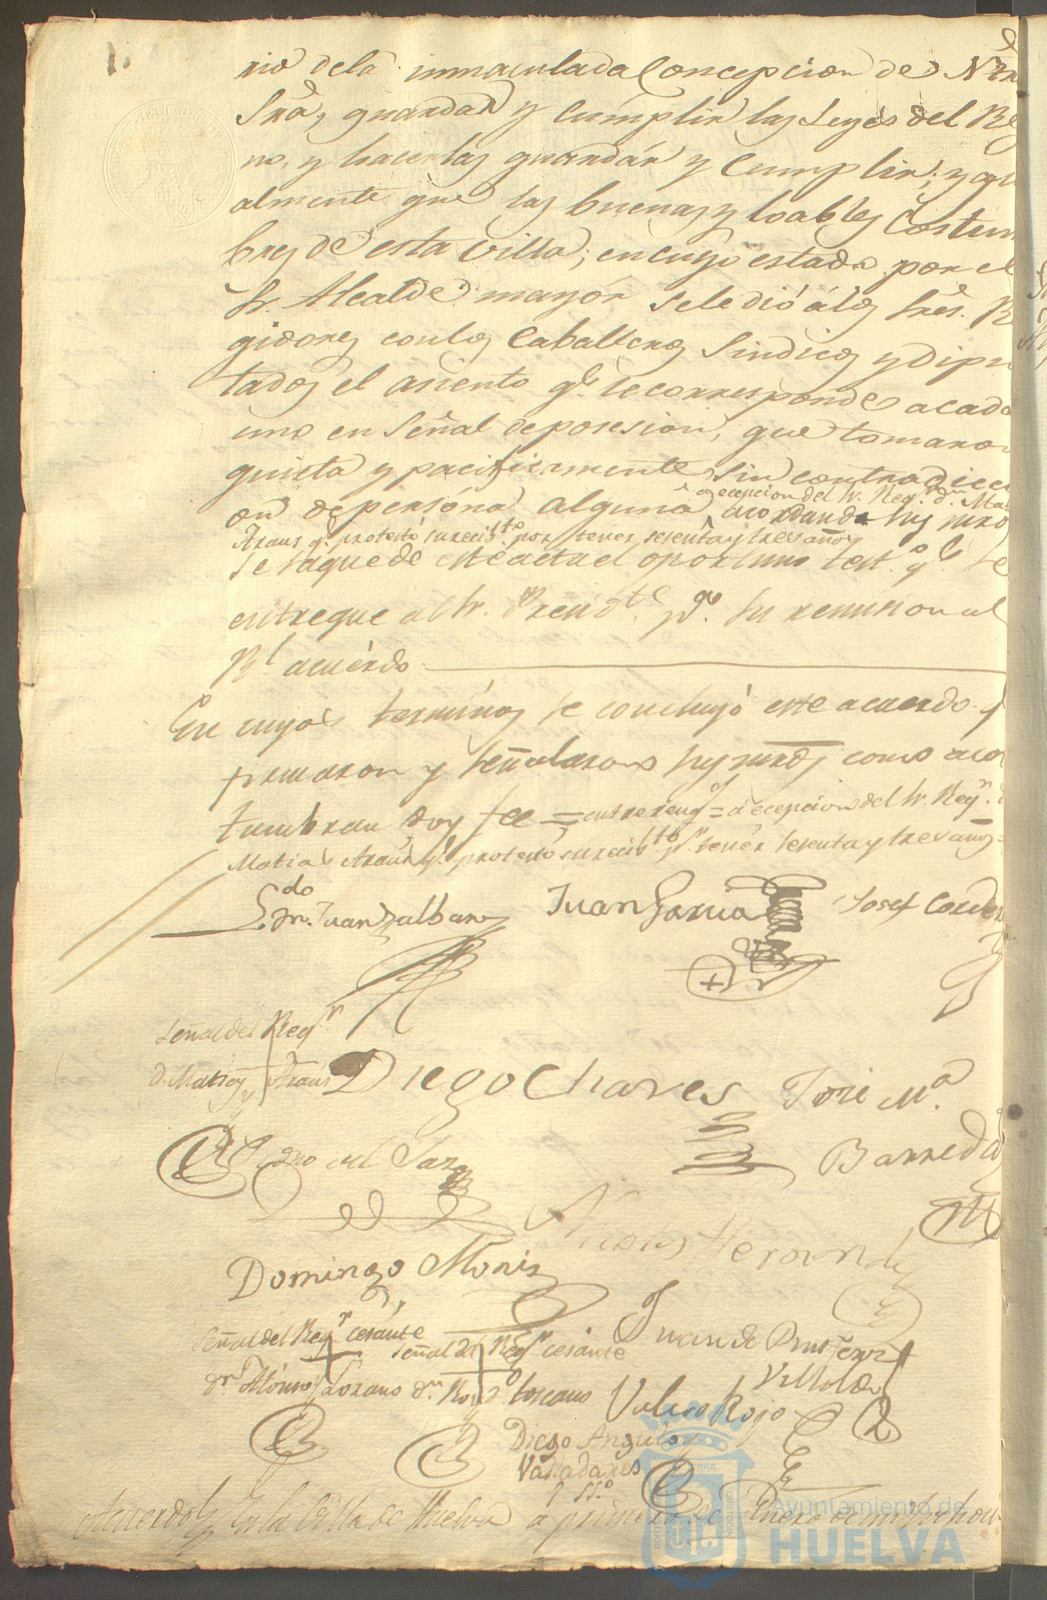 rio de la inmaculada Concepcion de Nra
Sra, guardar y Cumplir las Leyes del Rey
no, y hacerlas guardár y Cumplir; y gu
almente que las buenas y loables Costum
bres de esta villa; en cuyo estado por el
Sr. Alcalde mayór se le dió á los Sres. Re
gidores con los Caballeros Sindicos y Dipu
tados el asiento qe. le corresponde a cada
uno en Señal de posesion, que tomaron
quieta y pacificamente sin contradicci
on de persóna alguna acordando sus mrds
a ecepcion del Sr. Regr. dn. Mat
Araus qe. protestó su recibto. por tener sesenta y tres años
se saque de este acta el oportuno testo. qe. se
entregue al Sr. Presidte. pa. su remision al
Rl. acuérdo
En cuyos términos se concluyó este acuerdo y
firmaron y señalaron sus mrds como acos
tumbran doy fee = entrerengs. = a ecepcion del Sr. Regr. d
Matias Araus qe. protestó su recibto. pr. tener sesenta y tres años =
Ldo. Dn. Juan Zalbans
Juan Garcia
Josef Corder
Señal del Regr.
d. Matias Araus
Diego Chaves
José Ma.
Barreda
del Saz
Nicolas Hernand
Domingo Moriz
Juan de
Villolda
Señal del Regr. cesante
dn. Alonso Lozano
Señal del Regr. cesante
dn. Rodo. toscano
Rojo
Diego Angulo y
Valladares
SSno.
Acuerdo En la Villa de Huelva a primero de Enero de mil ocho
Ayuntamiento de
HUELVA